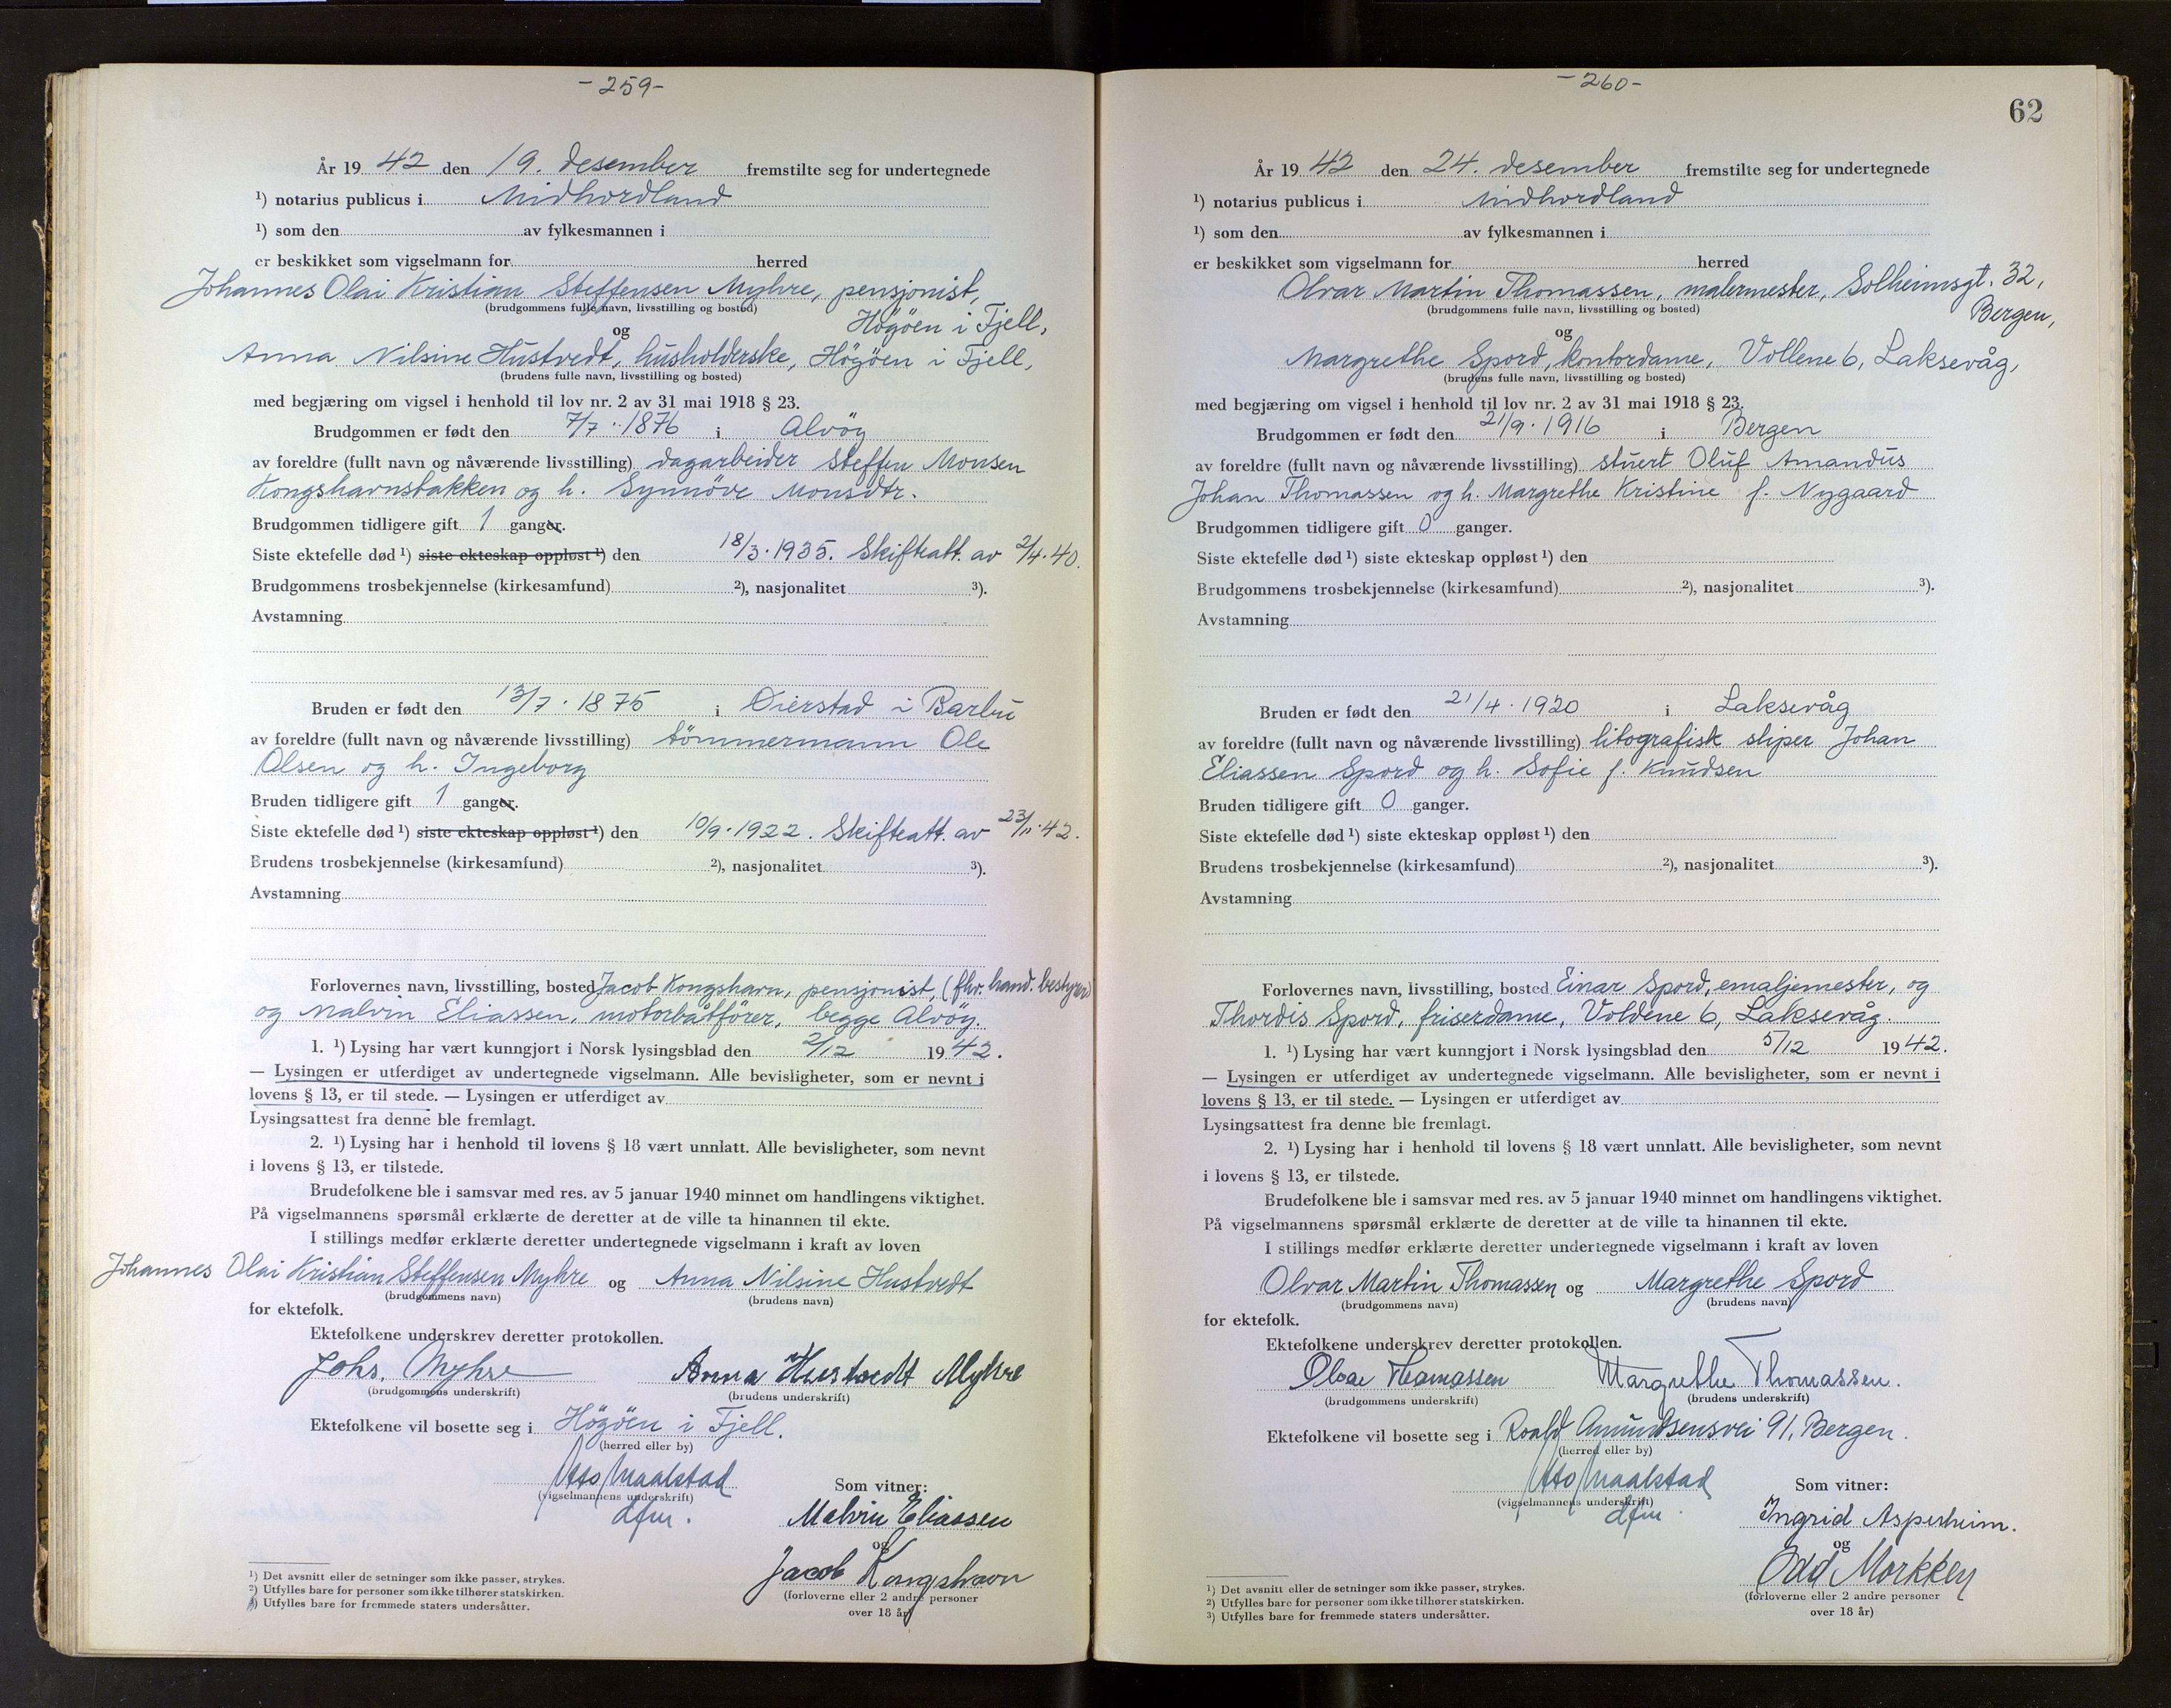 -259-
År 19 42 den 19. desember fremstilte seg for undertegnede
¹) notarius publicus i Midhordland
¹) som den av fylkesmannen i
er beskikket som vigselmann for herred
Johannes Olai Kristian Steffensen Myhre, pensjonist,
(brudgommens fulle navn, livsstilling og bosted)
Högöen i Fjell,
og
Anna Nilsine Hustvedt, husholderske, Högöen i Fjell,
(brudens fulle navn, livsstilling og bosted)
med begjæring om vigsel i henhold til lov nr. 2 av 31 mai 1918 § 23.
Brudgommen er født den 7/7 · 1876 i Alvöy
av foreldre (fullt navn og nåværende livsstilling) dagarbeider Steffen Monsen
Kongshavnsbakken og h. Synnöve Monsdtr.
Brudgommen tidligere gift 1 ganger.
Siste ektefelle død ¹) siste ekteskap oppløst ¹) den 18/3 · 1935. Skifteatt. av 2/4 · 40.
Brudgommens trosbekjennelse (kirkesamfund) ²), nasjonalitet ³).
Avstamning
Bruden er født den 13/7 · 1875 i Øierstad i Barbu
av foreldre (fullt navn og nåværende livsstilling) tömmermann Ole
Olsen og h. Ingeborg
Bruden tidligere gift 1 ganger.
Siste ektefelle død ¹) siste ekteskap oppløst ¹) den 10/9 · 1922. Skifteatt. av 23/11 · 42.
Brudens trosbekjennelse (kirkesamfund) ²), nasjonalitet ³).
Avstamning
Forlovernes navn, livsstilling, bosted Jacob Kongshavn, pensjonist, (fhv. hand. bestyrer)
og Malvin Eliassen, motorbåtfører, begge Alvöy.
1. ¹) Lysing har vært kunngjort i Norsk lysingsblad den 2/12 19 42.
— Lysingen er utferdiget av undertegnede vigselmann. Alle bevisligheter, som er nevnt i
lovens § 13, er til stede. — Lysingen er utferdiget av
Lysingsattest fra denne ble fremlagt.
2. ¹) Lysing har i henhold til lovens § 18 vært unnlatt. Alle bevisligheter, som nevnt
i lovens § 13, er tilstede.
Brudefolkene ble i samsvar med res. av 5 januar 1940 minnet om handlingens viktighet.
På vigselmannens spørsmål erklærte de deretter at de ville ta hinannen til ekte.
I stillings medfør erklærte deretter undertegnede vigselmann i kraft av loven
Johannes Olai Kristian Steffensen Myhre og Anna Nilsine Hustvedt
(brudgommens navn) (brudens navn)
for ektefolk.
Ektefolkene underskrev deretter protokollen.
Johs. Myhre Anna Hustvedt Myhre
(brudgommens underskrift) (brudens underskrift)
Ektefolkene vil bosette seg i Högöen i Fjell.
(herred eller by)
Otto Maalstad Som vitner:
(vigselmannens underskrift)
dfm. Malvin Eliassen
og
Jacob Kongshavn
(forloverne eller 2 andre personer
over 18 år)
¹) Det avsnitt eller de setninger som ikke passer, strykes.
²) Utfylles bare for personer som ikke tilhører statskirken.
³) Utfylles bare for fremmede staters undersåtter.
-260-
62
År 19 42 den 24. desember fremstilte seg for undertegnede
¹) notarius publicus i Midhordland
¹) som den av fylkesmannen i
er beskikket som vigselmann for herred
Olvar Martin Thomassen, malermester, Solheimsgt. 32,
(brudgommens fulle navn, livsstilling og bosted)
Bergen,
og
Margrethe Spord, kontordame, Vollene 6, Laksevåg,
(brudens fulle navn, livsstilling og bosted)
med begjæring om vigsel i henhold til lov nr. 2 av 31 mai 1918 § 23.
Brudgommen er født den 21/9 · 1916 i Bergen
av foreldre (fullt navn og nåværende livsstilling) stuert Oluf Amandus
Johan Thomassen og h. Margrethe Kristine f. Nygaard
Brudgommen tidligere gift 0 ganger.
Siste ektefelle død ¹) siste ekteskap oppløst ¹) den
Brudgommens trosbekjennelse (kirkesamfund) ²), nasjonalitet ³).
Avstamning
Bruden er født den 21/4 · 1920 i Laksevåg
av foreldre (fullt navn og nåværende livsstilling) litografisk sliper Johan
Eliassen Spord og h. Sofie f. Knudsen
Bruden tidligere gift 0 ganger.
Siste ektefelle død ¹) siste ekteskap oppløst ¹) den
Brudens trosbekjennelse (kirkesamfund) ²), nasjonalitet ³).
Avstamning
Forlovernes navn, livsstilling, bosted Einar Spord, emaljemester, og
Thordis Spord, friserdame, Voldene 6, Laksevåg.
1. ¹) Lysing har vært kunngjort i Norsk lysingsblad den 5/12 19 42.
— Lysingen er utferdiget av undertegnede vigselmann. Alle bevisligheter, som er nevnt i
lovens § 13, er til stede. — Lysingen er utferdiget av
Lysingsattest fra denne ble fremlagt.
2. ¹) Lysing har i henhold til lovens § 18 vært unnlatt. Alle bevisligheter, som nevnt
i lovens § 13, er tilstede.
Brudefolkene ble i samsvar med res. av 5 januar 1940 minnet om handlingens viktighet.
På vigselmannens spørsmål erklærte de deretter at de ville ta hinannen til ekte.
I stillings medfør erklærte deretter undertegnede vigselmann i kraft av loven
Olvar Martin Thomassen og Margrethe Spord
(brudgommens navn) (brudens navn)
for ektefolk.
Ektefolkene underskrev deretter protokollen.
Olvar Thomassen Margrethe Thomassen.
(brudgommens underskrift) (brudens underskrift)
Ektefolkene vil bosette seg i Roald Amundsensvei 91, Bergen.
(herred eller by)
Otto Maalstad Som vitner:
(vigselmannens underskrift)
dfm. Ingrid Asperheim.
og
Odd Morkken
(forloverne eller 2 andre personer
over 18 år)
¹) Det avsnitt eller de setninger som ikke passer, strykes.
²) Utfylles bare for personer som ikke tilhører statskirken.
³) Utfylles bare for fremmede staters undersåtter.